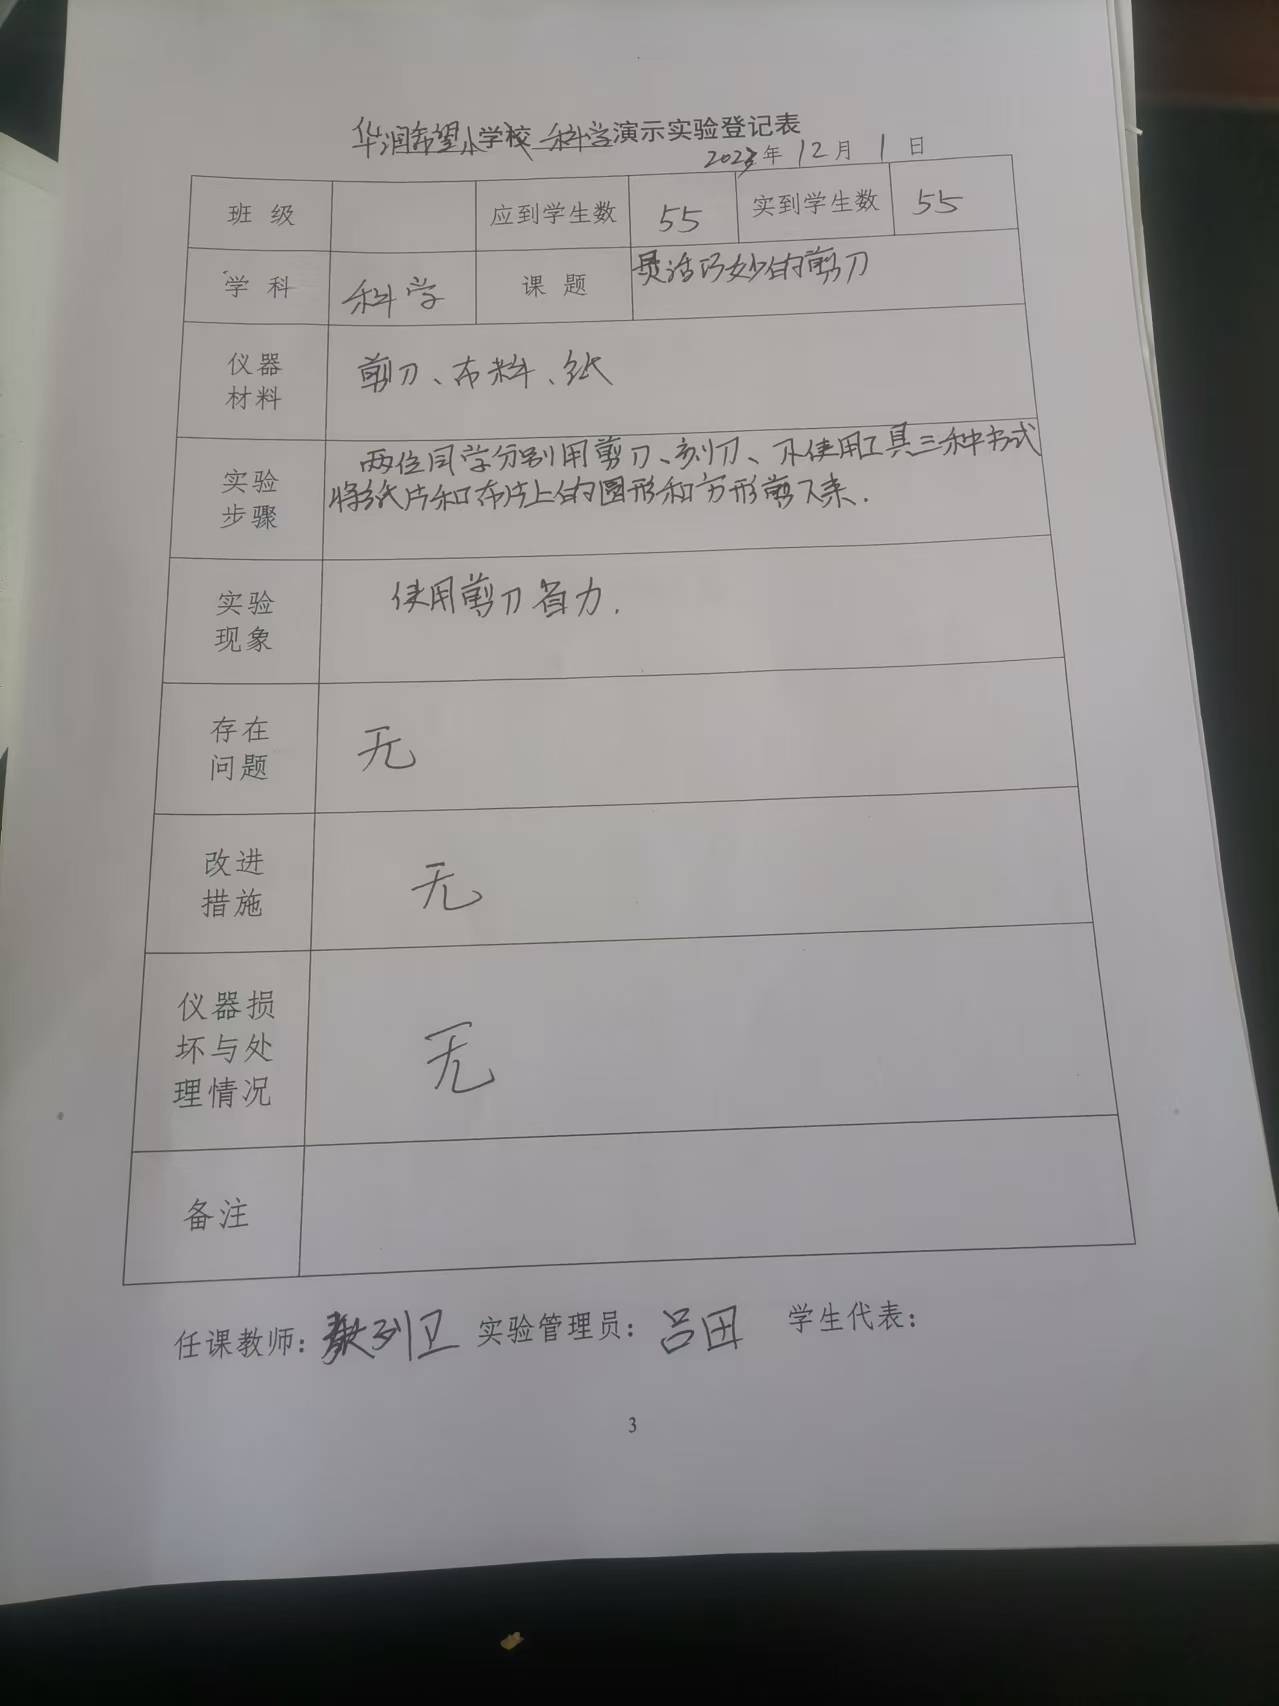 华润希望小学校 科学演示实验登记表
2023年 12月 1日
班级 应到学生数 55 实到学生数 55
学科 科学 课题 灵活巧妙的剪刀
仪器
材料
剪刀、布料、纸
实验
步骤
两位同学分别用剪刀、刻刀、不使用工具三种方式
将纸片和布片上的圆形和方形剪下来.
实验
现象
使用剪刀省力.
存在
问题
无
改进
措施
无
仪器损
坏与处
理情况
无
备注
任课教师: 实验管理员: 吕田 学生代表:
3